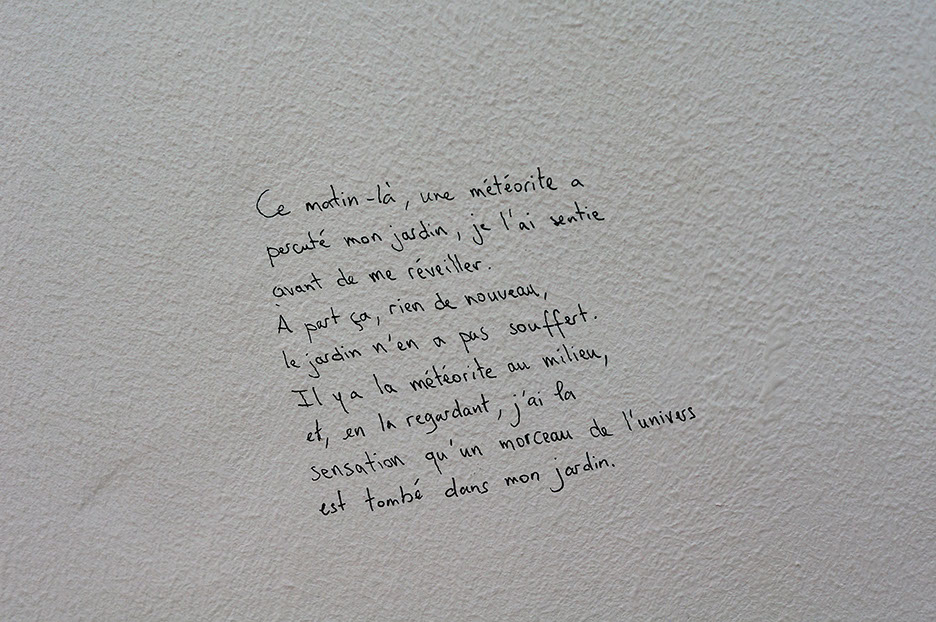 Ce matin-là, une météorite a
percuté mon jardin, je l'ai sentie
avant de me réveiller.
À part ça, rien de nouveau,
le jardin n'en a pas souffert.
Il y a la météorite au milieu,
et, en la regardant, j'ai la
sensation qu'un morceau de l'univers
est tombé dans mon jardin.